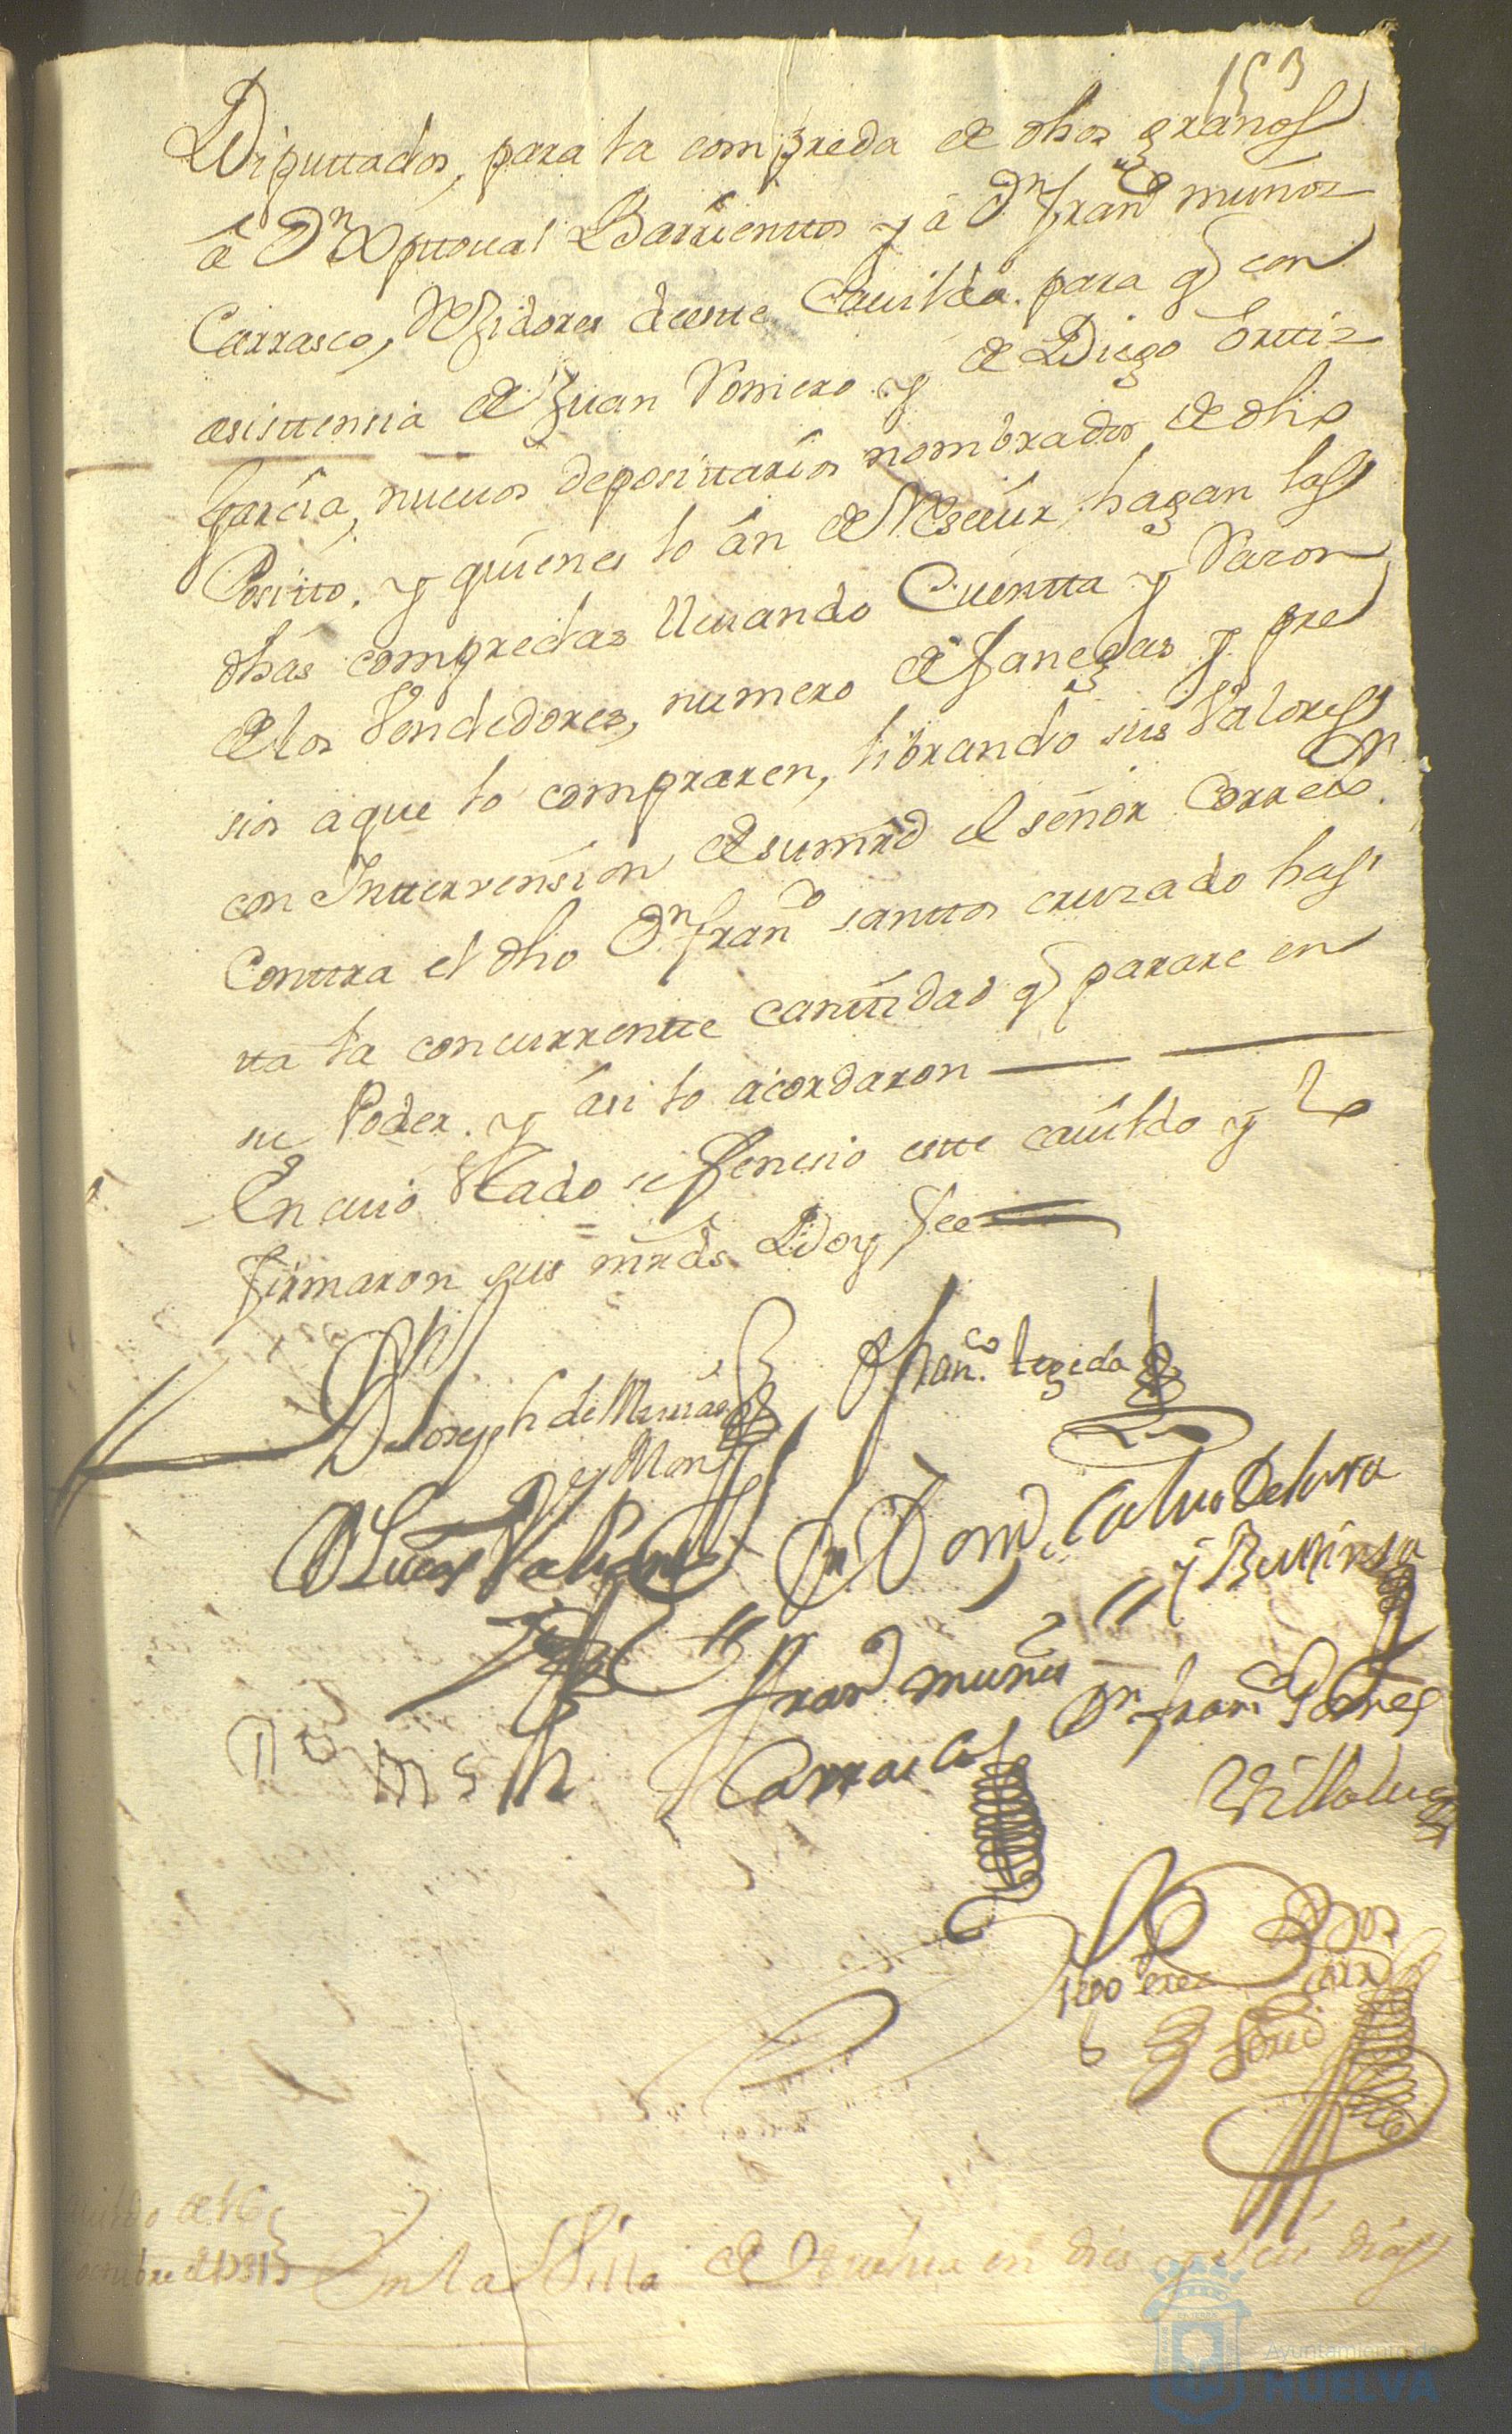 153
Diputtados, para la compreda de dhos granos
â Dn Xpttoual Barrienttos y â Dn Franco muñoz
Carrasco, Rexidores de este Cauildo. para q con
asisttensia de Juan Romero y de Diego Orttiz
Garcia, nueuos deposittarios nombrados de dho
Positto. y quienes lo ân de Reseuir, hagan las
dhas compredas lleuando Cuentta y Razon
de los Vendedores, numero de fanegas y pre
sios a que lo compraren, librando sus Valores
con Intterrensión de su mrd el señor Corregor.
Conttra el dho Dn Franco santtos cruzado has
tta la concurrentte canttidad q parare en
su Poder. y âsi lo acordaron
En cuio esttado se fenesio estte cauildo y lo
firmaron sus mrds. Doy fee
Dn Joseph de
Franco tegeda
Dn Domo Caluo Delara
Franco muños
Carrasco
Dn Franco
Diego Perez
cauildo de 16
octubre de 1731
En la Villa de Huelua en dies y seis dias
Ayuntamiento de
HUELVA